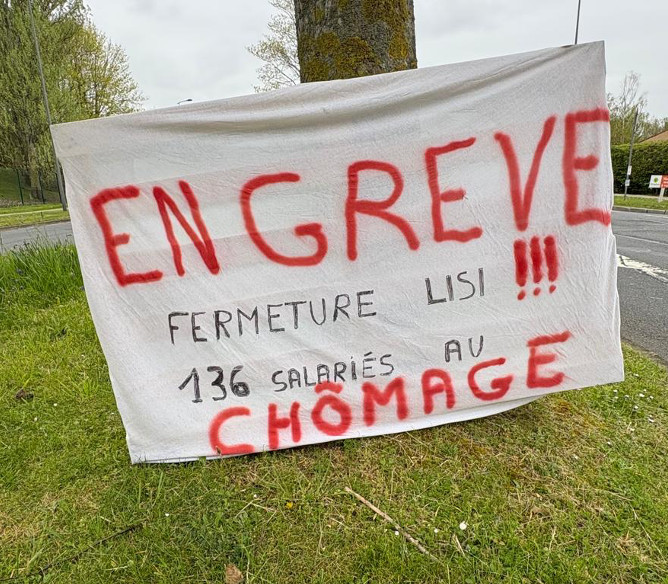 EN GREVE
!!!
FERMETURE LISI
136 SALARIÉS AU
CHÔMAGE